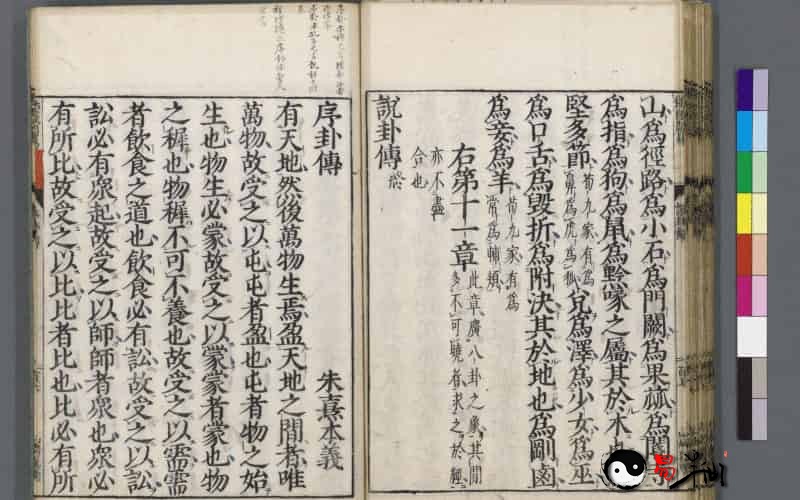 山爲徑路爲小石爲門闕爲果蓏爲閽
爲指爲狗爲鼠爲黔喙之屬其於木也
堅多節荀九家有爲鼻爲虎爲狐兌爲澤爲少女爲巫
爲口舌爲毀折爲附決其於地也爲剛鹵
爲妾爲羊荀九家有爲常爲輔頰
右第十一章此章廣八卦之象其間多不可曉者求之於經
亦不盡
合也
說卦傳終
序卦傳 朱熹本義
有天地然後萬物生焉盈天地之間者唯
萬物故受之以屯屯者盈也屯者物之始
生也物生必蒙故受之以蒙蒙者蒙也物
之穉也物穉不可不養也故受之以需需
者飲食之道也飲食必有訟故受之以訟
訟必有衆起故受之以師師者衆也衆必
有所比故受之以比比者比也比必有所